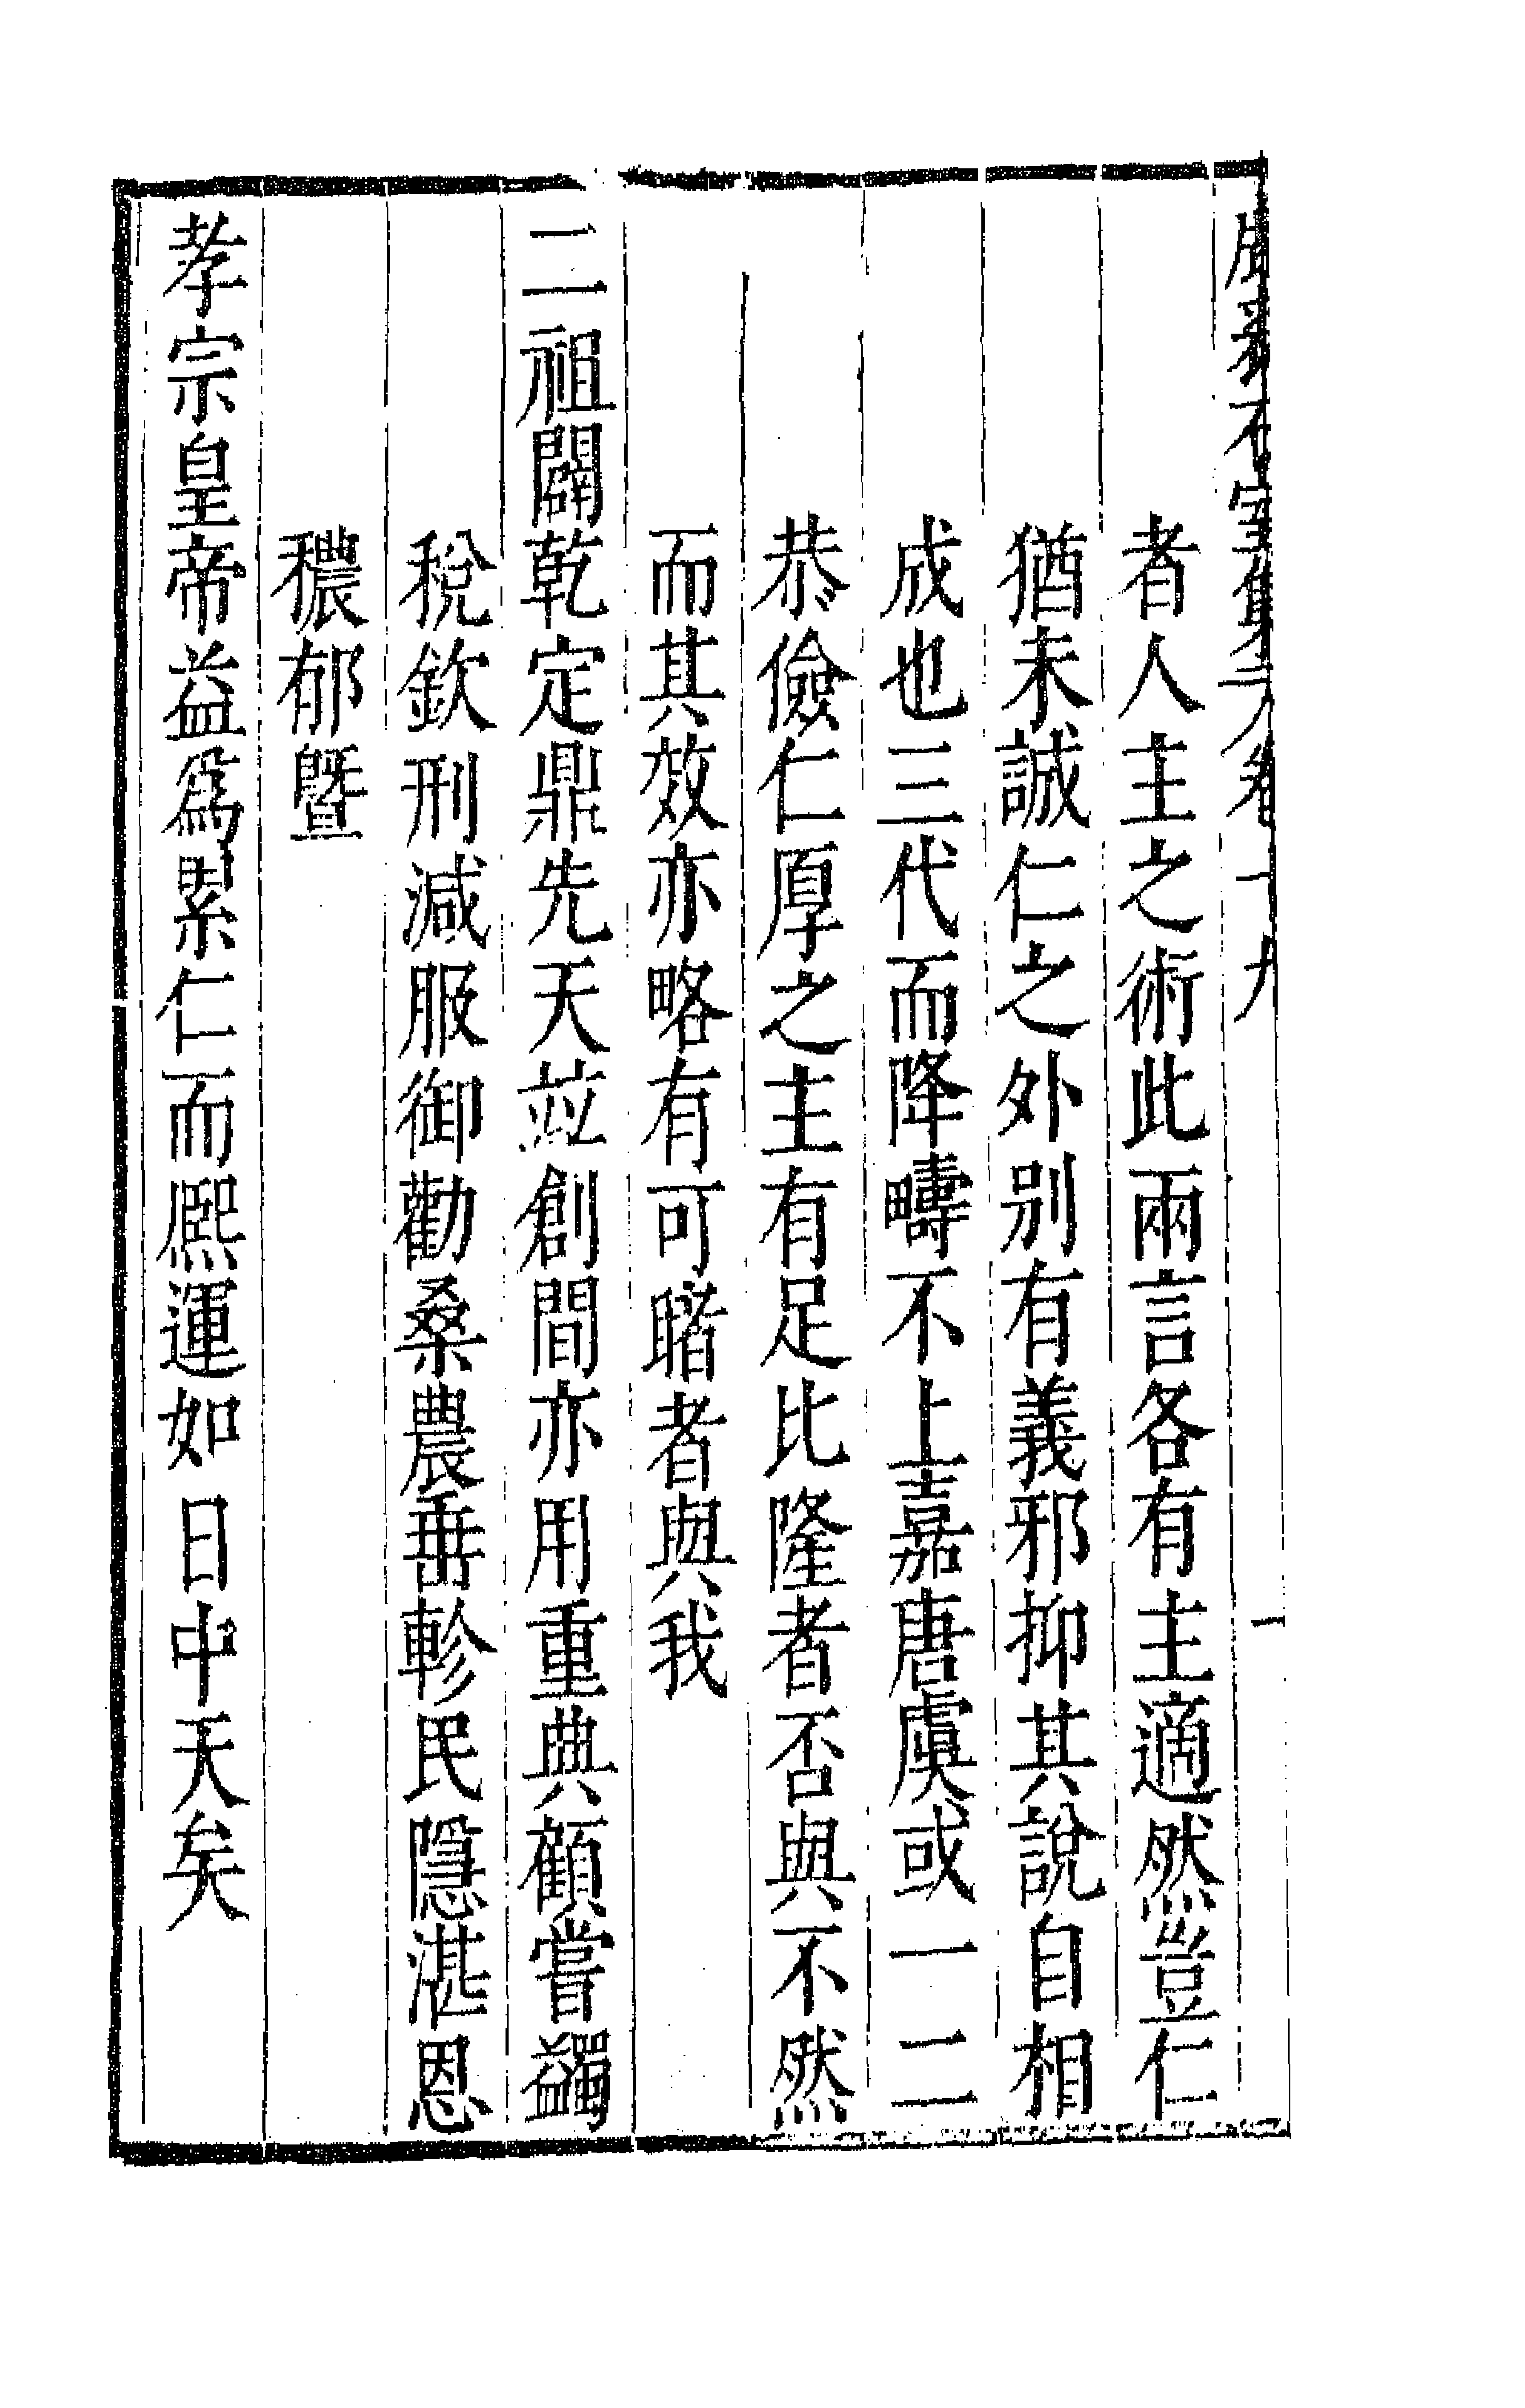 卷十九 一
者人主之術此兩言各有主適然豈仁
猶未誠仁之外別有義邪抑其說自相
成也三代而降疇不上嘉唐虞或一二
恭儉仁厚之主有足比隆者否與不然
而其效亦略有可睹者與我
二祖闢乾定鼎先天並創間亦用重典顧嘗蠲
稅欽刑減服御勸桑農垂軫民隱湛恩
穠郁曁
孝宗皇帝益爲累仁而熙運如日中天矣